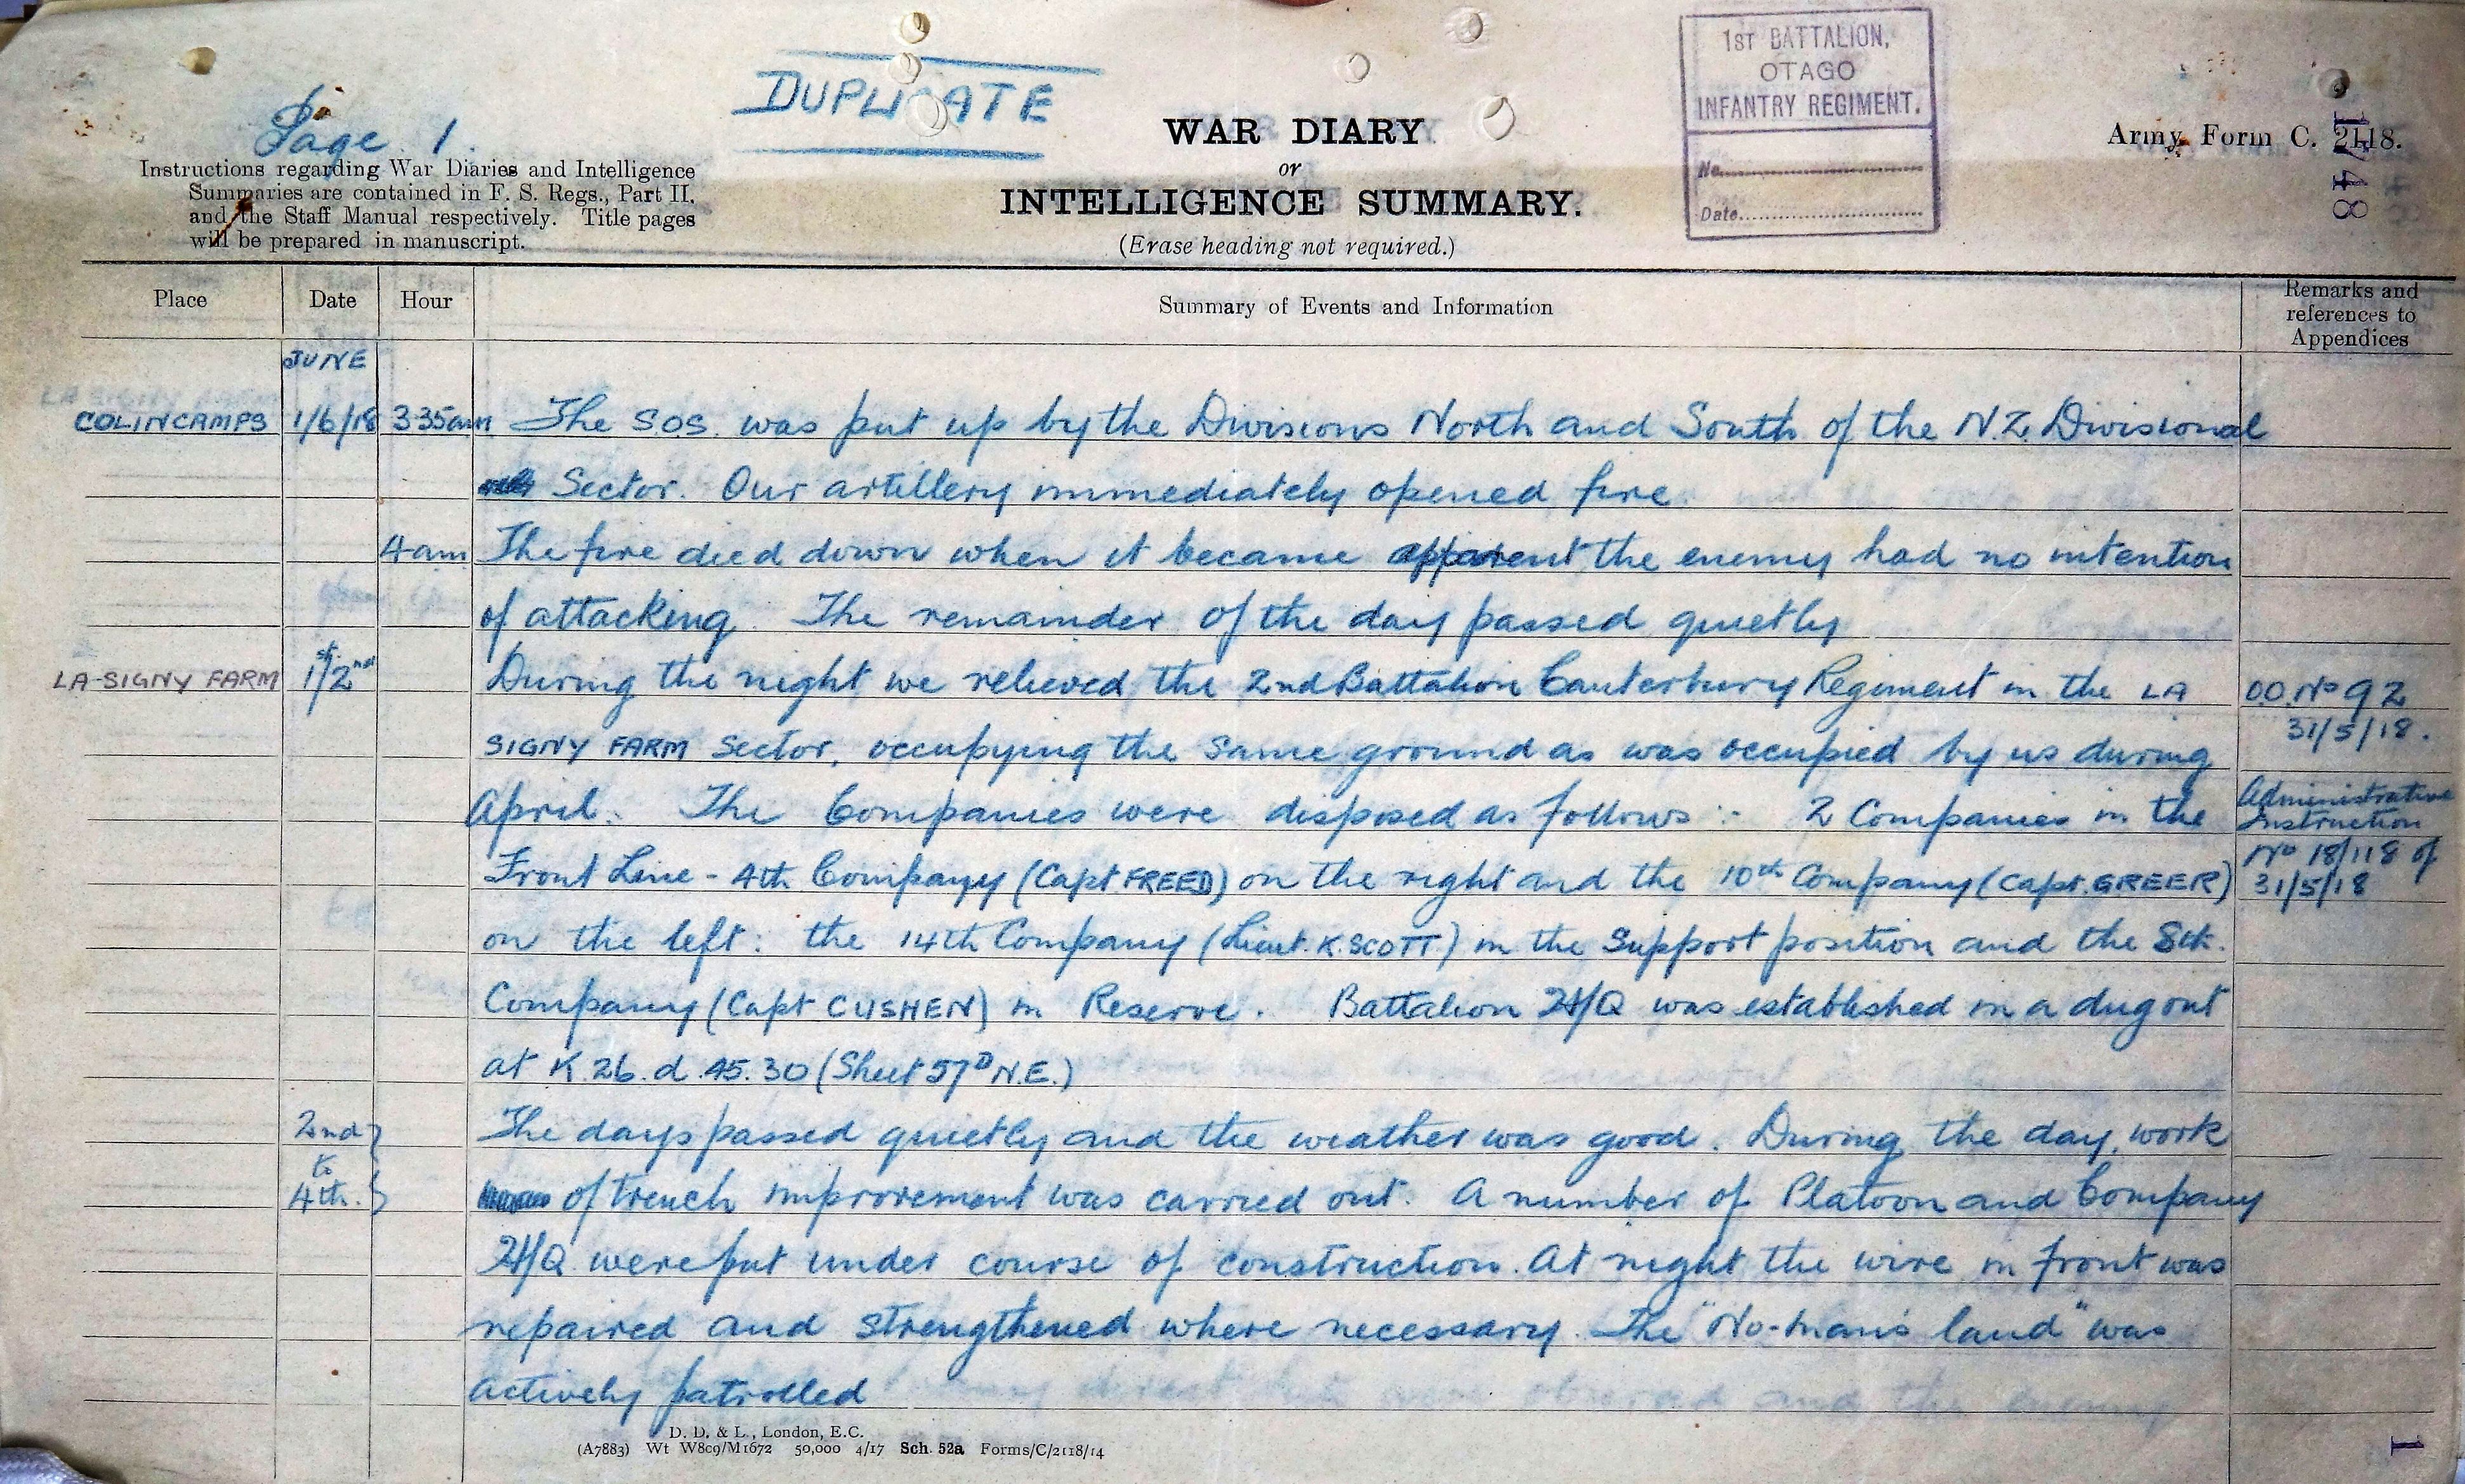 DUPLICATE
Page 1.
1ST BATTALION,
OTAGO
INFANTRY REGIMENT.
No.
Date
WAR DIARY
or
INTELLIGENCE SUMMARY.
(Erase heading not required.)
Army Form C. 2118.
1748
Instructions regarding War Diaries and Intelligence
Summaries are contained in F. S. Regs., Part II.
and the Staff Manual respectively. Title pages
will be prepared in manuscript.
Place Date Hour Summary of Events and Information Remarks and
references to
Appendices
JUNE
COLINCAMPS 1/6/18 3 35am The S.O.S. was put up by the Divisions North and South of the N.Z. Divisional
Sector. Our artillery immediately opened fire
4 am The fire died down when it became apparent the enemy had no intention
of attacking. The remainder of the day passed quietly
LA-SIGNY FARM 1st/2nd During the night we relieved the 2nd Battalion Canterbury Regiment in the LA O.O. No 92
SIGNY FARM Sector, occupying the same ground as was occupied by us during 31/5/18.
April. The Companies were disposed as follows :- 2 Companies in the Administrative
Instruction
Front Line - 4th Company (Capt FREED) on the right and the 10th Company (Capt. GREER) No 18/118 of
31/5/18
on the left: the 14th Company (Lieut. K. SCOTT) in the Support position and the 8th.
Company (Capt CUSHEN) in Reserve. Battalion H/Q was established in a dugout
at K.26.d.45.30 (Sheet 57D N.E.)
2nd The days passed quietly and the weather was good. During the day, work
to
4th. of trench improvement was carried out. A number of Platoon and Company
H/Q were put under course of construction. At night the wire in front was
repaired and strengthened where necessary. The "No-man's land" was
actively patrolled
D. D. & L., London, E.C.
(A7883) Wt W809/M1672 50,000 4/17 Sch. 52a Forms/C/2118/14
1